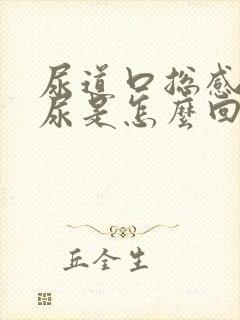 尿道口总感
尿是怎麼回
丘全生